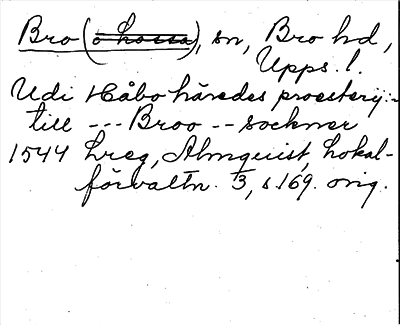 Bro (o Lossa), sn, Bro hd,
Upps. l.
Udi Håbo häredes proesterij:
till --- Broo -- sockner
1544 Lreg, Almquist, Lokal-
förvaltn. 3, s. 169. orig.